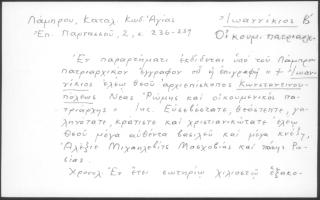 Λάμπρου, Καταλ. Κωδ. Ἁγίας Ἰωαννίκιος Β′
Ἐπ. Παρτασκού, 2, σ. 236-239 Οἰκουμ. πατριαρχ.
Ἐν παραρτήματι ἐκδίδεται ὑπὸ τοῦ Λάμπρου
πατριαρχικὸν ἔγγραφον οὗ ἡ ἐπιγραφή "+ Ἰωαννί-
κιος ἐλέῳ θεοῦ ἀρχιεπίσκοπος Κωνσταντινου-
πόλεως Νέας Ῥώμης καὶ οἰκουμενικὸς πα-
τριάρχης" Inc. Εὐσεβέστατε, θεόστεπτε, γα-
ληνότατε, κράτιστε καὶ χριστιανικώτατε ἐλέῳ
θεοῦ μέγα αὐθέντα βασιλεῦ καὶ μέγα κνέζη,
Ἀλέξιε Μιχαηλοβίτζ Μοσχοβίας καὶ πάσης Ρω-
σίας.
Χρονολ. Ἐν ἔτει σωτηρίῳ χιλιοστῷ ἑξακο-